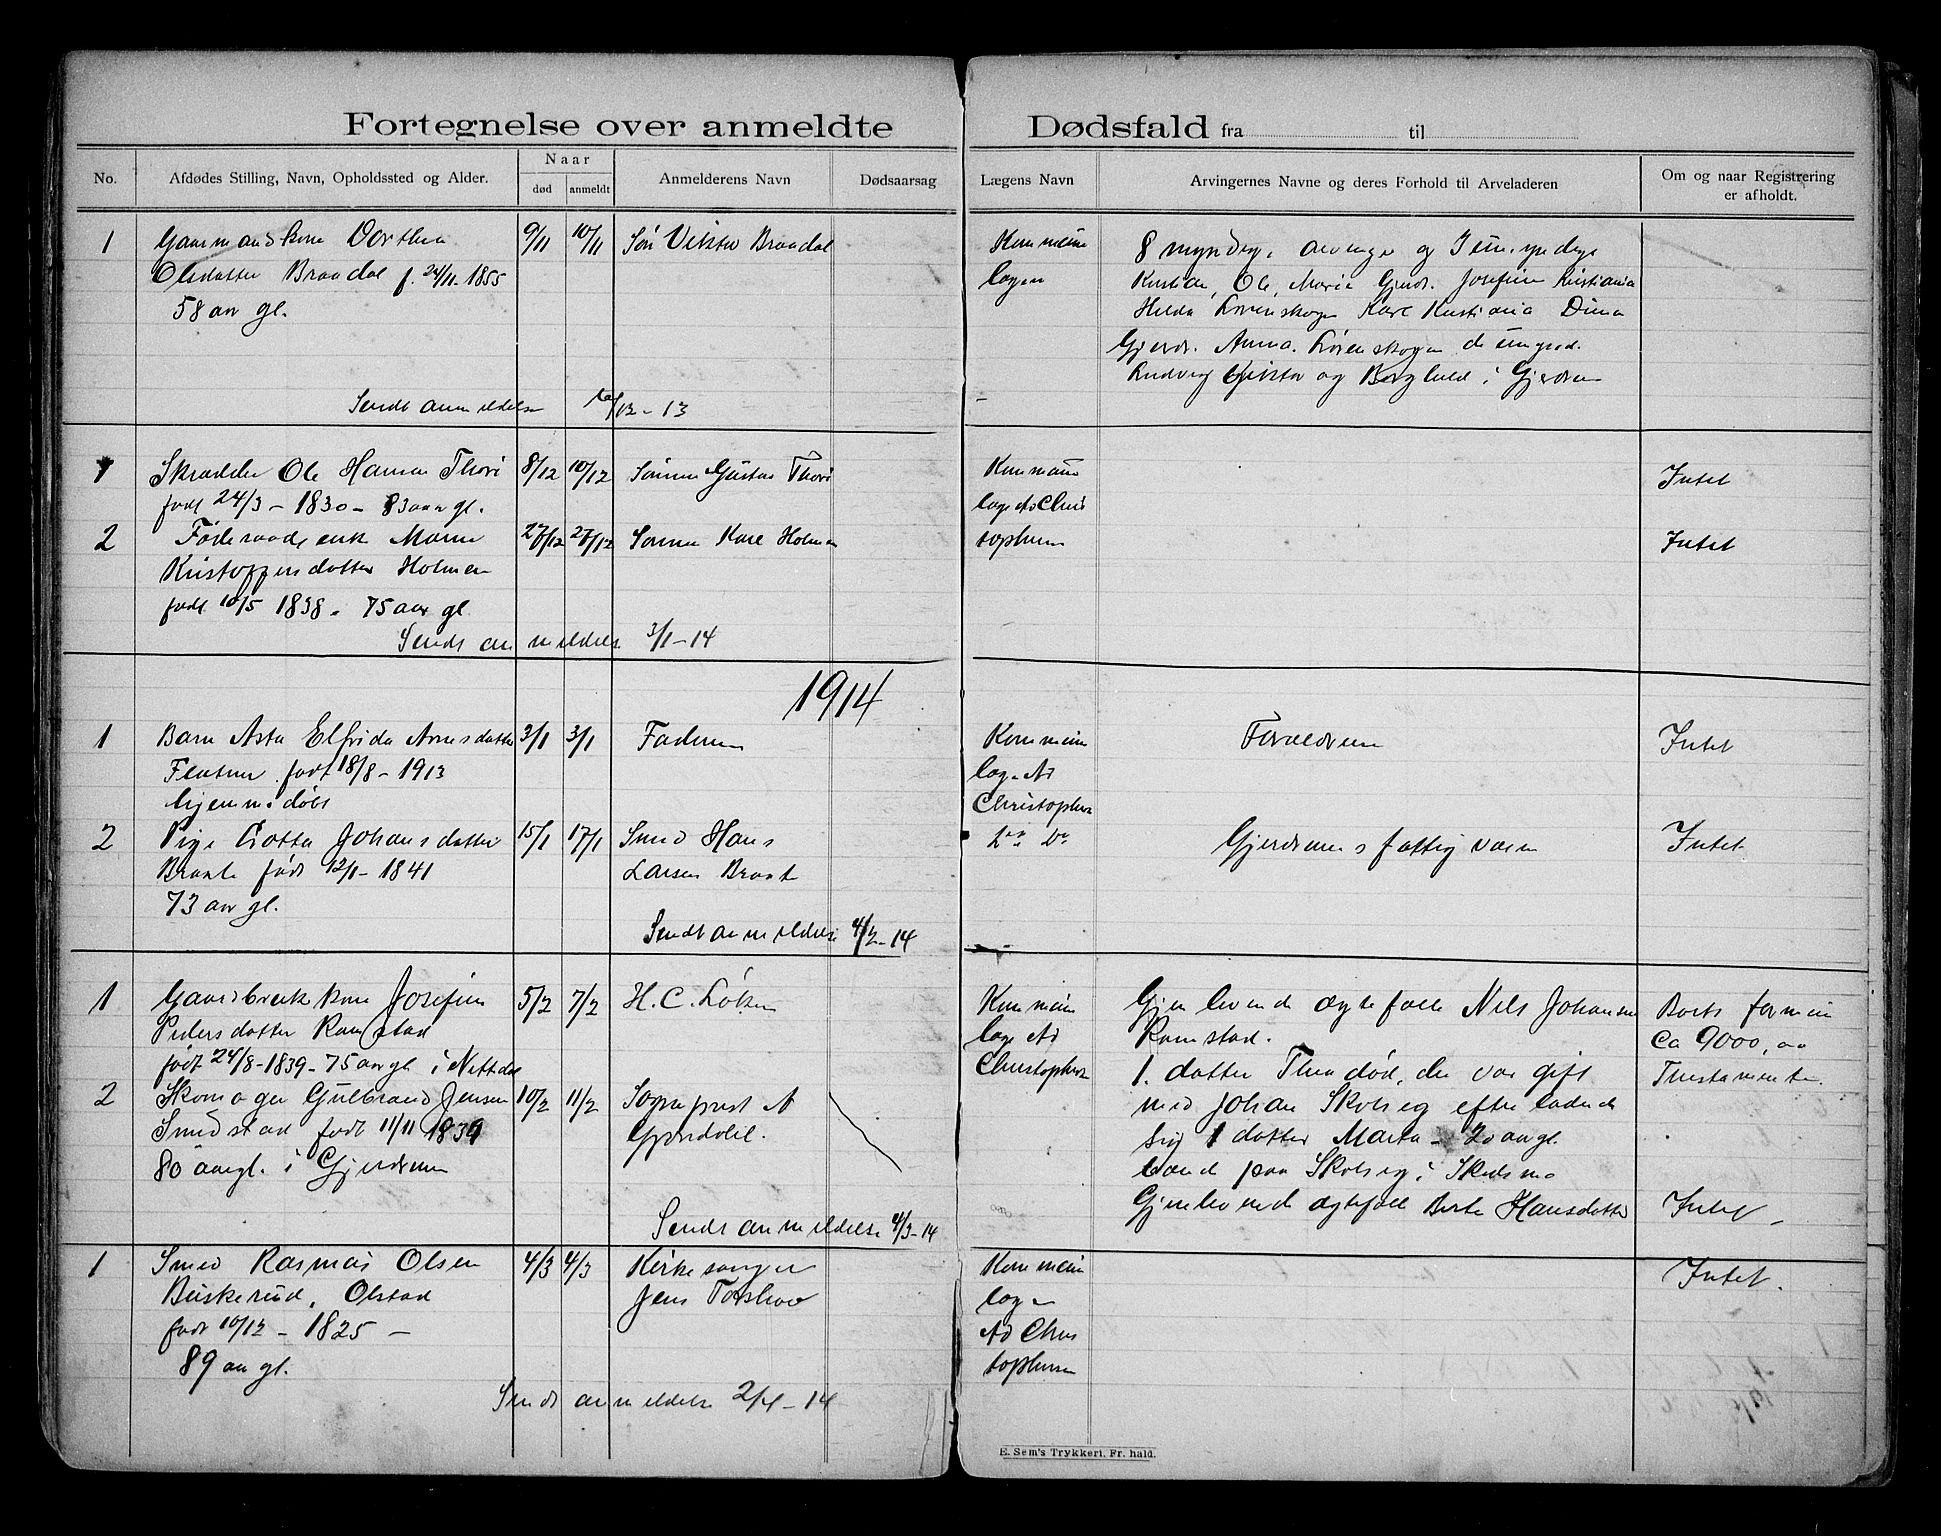 Fortegnelse over anmeldte Dødsfald fra til
No. Afdødes Stilling, Navn, Opholdssted og Alder. Naar død anmeldt Anmelderens Navn Dødsaarsag Lægens Navn Arvingernes Navne og deres Forhold til Arveladeren Om og naar Registrering er afholdt.
1 Dorthea 9/11 10/11 Søn Viktor Braadal
Olsdatter Braadal f. 24/11-1855
58 aar gl.
Sendt anmeldelse /12-13
1 Skrædder Ole Hansen Thori 8/12 10/12 Sønnen Gustav Thori
født 24/3 - 1830 - 83 aar gl.
2 Føderaadsenk Maren 27/12 27/12 Sønnen Karl Holmen
Kristoffersdatter Holmen
født 10/5 1838 - 75 aar gl
Sendt anmeldelse 3/1-14
1914
1 Barn Asta Elfrida Arnesdatter 3/1 3/1 Faderen
født 18/8 - 1913
hjemmedøbt
2 Pige Lotta Johansdatter 15/1 17/1 Smed Hans
Braate født 12/1-1841 Larsen Braate
73 aar gl.
Sendt anmeldelse 4/2-14
1 Gaardbrukkone Josefine 5/2 7/2 H. C. Løken
Pedersdatter Ramstad
født 24/8-1839-75 aar gl i Nittedal
2 Skomager Gulbrand Jensen 10/2 11/2 Sogneprest A
Smedstad født 11/11 1834
80 aar gl. i Gjerdrum
Sendt anmeldelse 4/3-14
1 Smed Rasmus Olsen 4/3 4/3 Kirkesanger
Buskerud, Olstad Jens Torshov
født 10/12 - 1825 -
89 aar gl.
Sendt anmeldelse 2/4-14
Kommune 8 myndige arvinger og 3 umyndige
lægen Kristian, Ole, Marie Gjerdr. Josefine Kristiania
Hilda Lørenskogen Karl Kristiania Dina
Gjerdr. Anna Lørenskogen de umynd.
Ludvig Viktor og Borghild i Gjerdrum
Kommune Intet
læge Ad Chris
tophersen Intet
Kommune Forældrene Intet
læge Ad
Christophersen
Do Do Gjerdrums fattigvæsen Intet
Kommune Gjenlevende ægtefælle Nils Johansen Boets formue
læge Ad Ramstad. Ca 9000,00
Christophersen 1. datter Thea død, der var gift Thestamente.
med Johan Skolseg efterladende
sig 1 datter Marta - 20 aar gl.
paa Skolseg i Skedsmo
Gjenlevende ægtefæll Berte Hansdatter Intet
Kommune Intet.
læge
Ad Chris
tophersen
E. Sem's Trykkeri. Fr. hald.